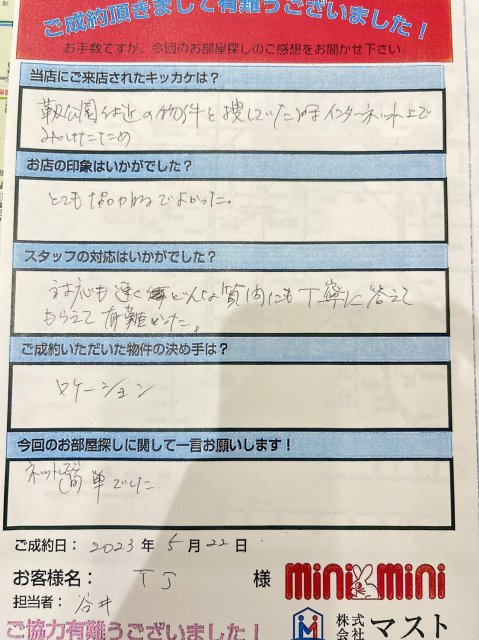 ご成約頂きまして有難うございました！
お手数ですが、今回のお部屋探しのご感想をお聞かせ下さい
当店にご来店されたキッカケは？
靭公園付近の物件を捜していた時インターネット上で
みつけたため
お店の印象はいかがでしたか？
とても協力的でよかった。
スタッフの対応はいかがでしたか？
対応も速くどんな質問にも丁寧に答えて
もらえて有難かった。
ご成約いただいた物件の決め手は？
ロケーション
今回のお部屋探しに関して一言お願いします！
ネットで簡単でした
ご成約日：2023年5月22日
お客様名：TJ 様
担当者：谷井
mini mini
株式会社マスト
ご協力有難うございました！